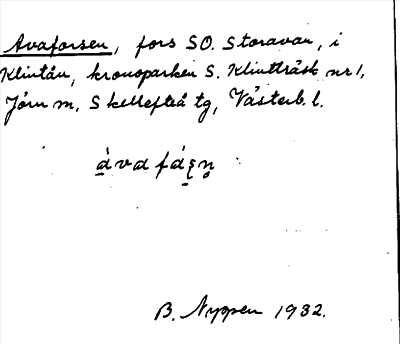 Avaforsen, fors SO. Storavan, i
Klintån, kronoparken S. Klintträsk nr 1,
Jörn m, Skellefteå tg, Västerb. l.
B. Nyppen 1932.